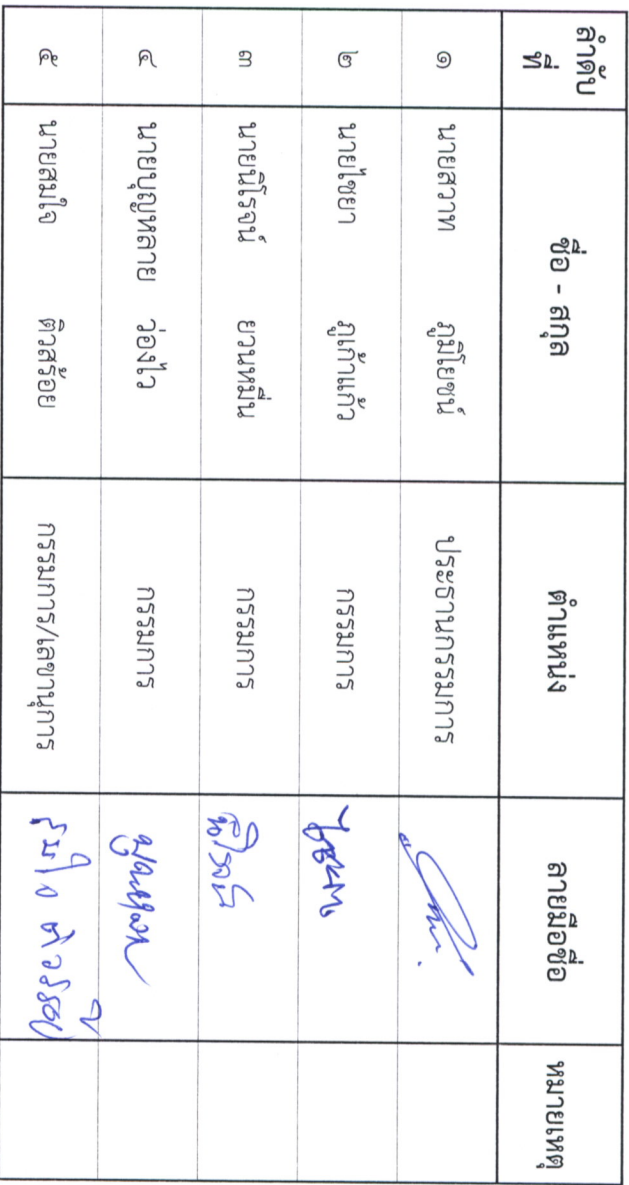 ลำดับที่ ชื่อ - สกุล ตำแหน่ง ลายมือชื่อ หมายเหตุ
๑ นายสวาท ภูมิโยชน์ ประธานกรรมการ
๒ นายไชยา ภูเก้าแก้ว กรรมการ ไชยา
๓ นายนิโรจน์ ยวนหมื่น กรรมการ นิโรจน์
๔ นายบุญหลาย ว่องไว กรรมการ บุญหลาย
๕ นายสมใจ ติวสร้อย กรรมการ/เลขานุการ สมใจ ติวสร้อย